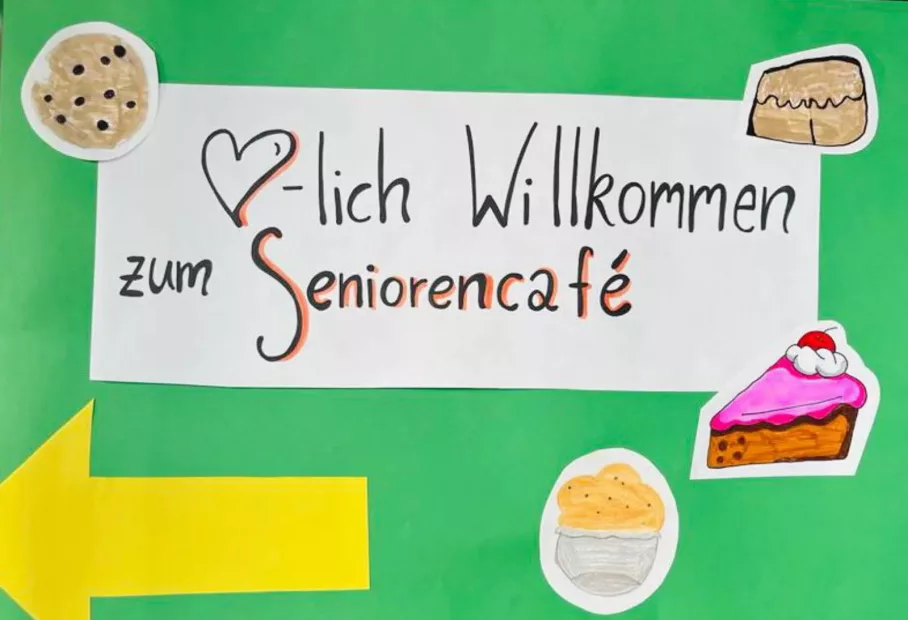 ♡-lich Willkommen
zum Seniorencafé